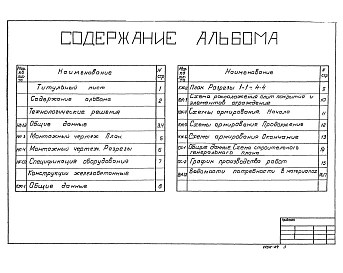 СОДЕРЖАНИЕ АЛЬБОМА
Наименование
Титульный лист 1
Содержание альбома 2
Технологические решения
Общие данные 3,4
Монтажный чертеж. План 5
Монтажный чертеж. Разрезы 6
Спецификация оборудования 7
Конструкции железобетонные
Общие данные 8
Наименование
План. Разрезы 1-1 ÷ 4-4 9
Схема расположения плит покрытия и
элементов ограждения 10
Схемы армирования. Начало 11
Схемы армирования. Продолжение 12
Схемы армирования. Окончание 13
Общие данные. Схема строительного
генерального плана 14
График производства работ 15
Ведомости потребности в материалах